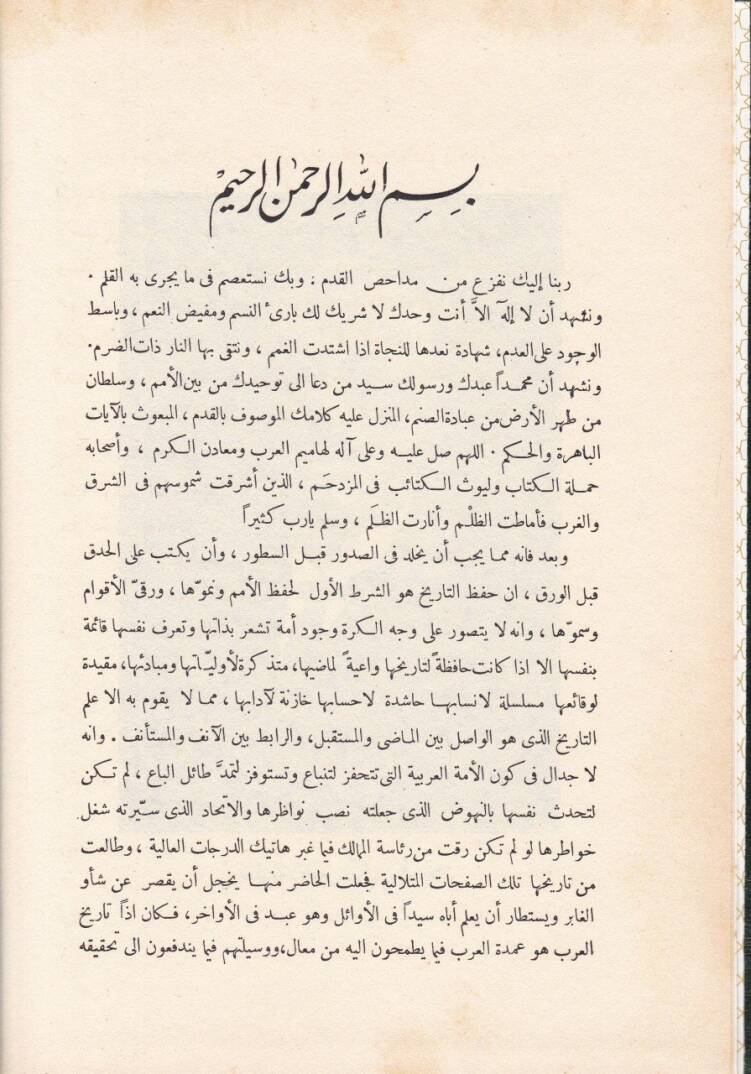 بِسْمِ اللهِ الرحمن الرحيم
ربنا إليك نفزع من مداحض القدم ، وبك نستعصم فى ما يجرى به القلم .
ونشهد أن لا إلهَ الاَّ أنت وحدك لا شريك لك بارئ النسم ومفيض النعم ، وباسط
الوجود على العدم، شهادة نعدها للنجاة اذا اشتدت الغمم ، ونتقى بها النار ذات الضرم.
ونشهد أن محمداً عبدك ورسولك سيد من دعا الى توحيدك من بين الأمم ، وسلطان
من طهر الأرض من عبادة الصنم، المنزل عليه كلامك الموصوف بالقدم ، المبعوث بالآيات
الباهرة والحكم . اللهم صل عليه وعلى آله لهاميم العرب ومعادن الكرم ، وأصحابه
حملة الكتاب وليوث الكتائب فى المزدحَم ، الذين أشرقت شموسهم فى الشرق
والغرب فأماطت الظلْم وأنارت الظلَم ، وسلم يارب كثيراً
وبعد فانه مما يجب أن يخلد فى الصدور قبل السطور ، وأن يكتب على الحدق
قبل الورق ، ان حفظ التاريخ هو الشرط الأول لحفظ الأمم ونموّها ، ورقىّ الأقوام
وسموّها ، وانه لا يتصور على وجه الكرة وجود أمة تشعر بذاتها وتعرف نفسها قائمة
بنفسها الا اذا كانت حافظةً لتاريخها واعيةً لماضيها، متذكرة لأوليّاتها ومبادئها، مقيدة
لوقائعها مسلسلة لانسابها حاشدة لاحسابها خازنة لآدابها ، مما لا يقوم به الا علم
التاريخ الذى هو الواصل بين الماضى والمستقبل، والرابط بين الآنف والمستأنف . وانه
لا جدال فى كون الأمة العربية التى تتحفز لتنباع وتستوفز لتمدَّ طائل الباع ، لم تكن
لتحدث نفسها بالنهوض الذى جعلته نصب نواظرها والاتحاد الذى سيّرته شغل
خواطرها لو لم تكن رقت من رئاسة الممالك فيما غبر هاتيك الدرجات العالية ، وطالعت
من تاريخها تلك الصفحات المتلالية فجعلت الحاضر منها يخجل أن يقصر عن شأو
الغابر ويستطار أن يعلم أباه سيداً فى الأوائل وهو عبد فى الأواخر، فكان اذاً تاريخ
العرب هو عمدة العرب فيما يطمحون اليه من معال،ووسيلتهم فيما يندفعون الى تحقيقه